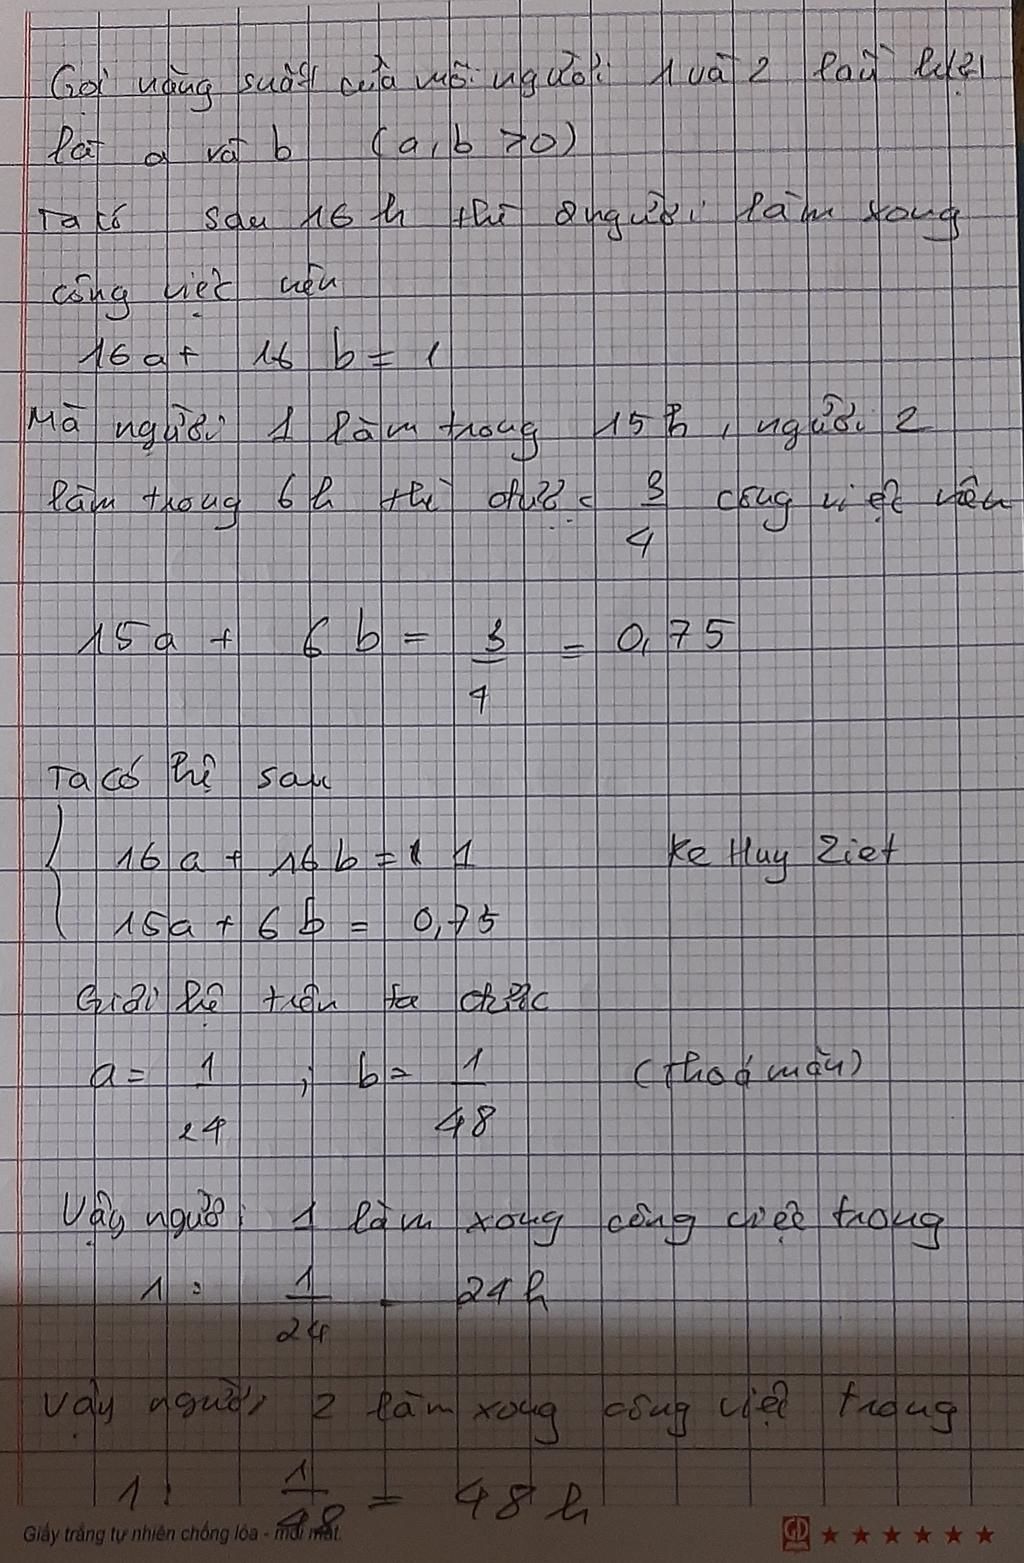 Gọi năng suất của mỗi người 1 và 2 lần lượt
là a và b (a, b > 0)
Ta có sau 16 h thì 2 người làm xong
công việc nên
16 a + 16 b = 1
Mà người 1 làm trong 15 h, người 2
làm trong 6 h thì được 3/4 công việc nên
15 a + 6 b = 3/4 = 0,75
Ta có hệ sau
16 a + 16 b = 1
Ke Huy Ziet
15a + 6 b = 0,75
Giải hệ trên ta được
a = 1/24 ; b = 1/48 (thoả mãn)
Vậy người 1 làm xong công việc trong
1 : 1/24 = 24 h
Vậy người 2 làm xong công việc trong
1 : 1/48 = 48 h
Giấy trắng tự nhiên chống lóa - mỏi mắt.